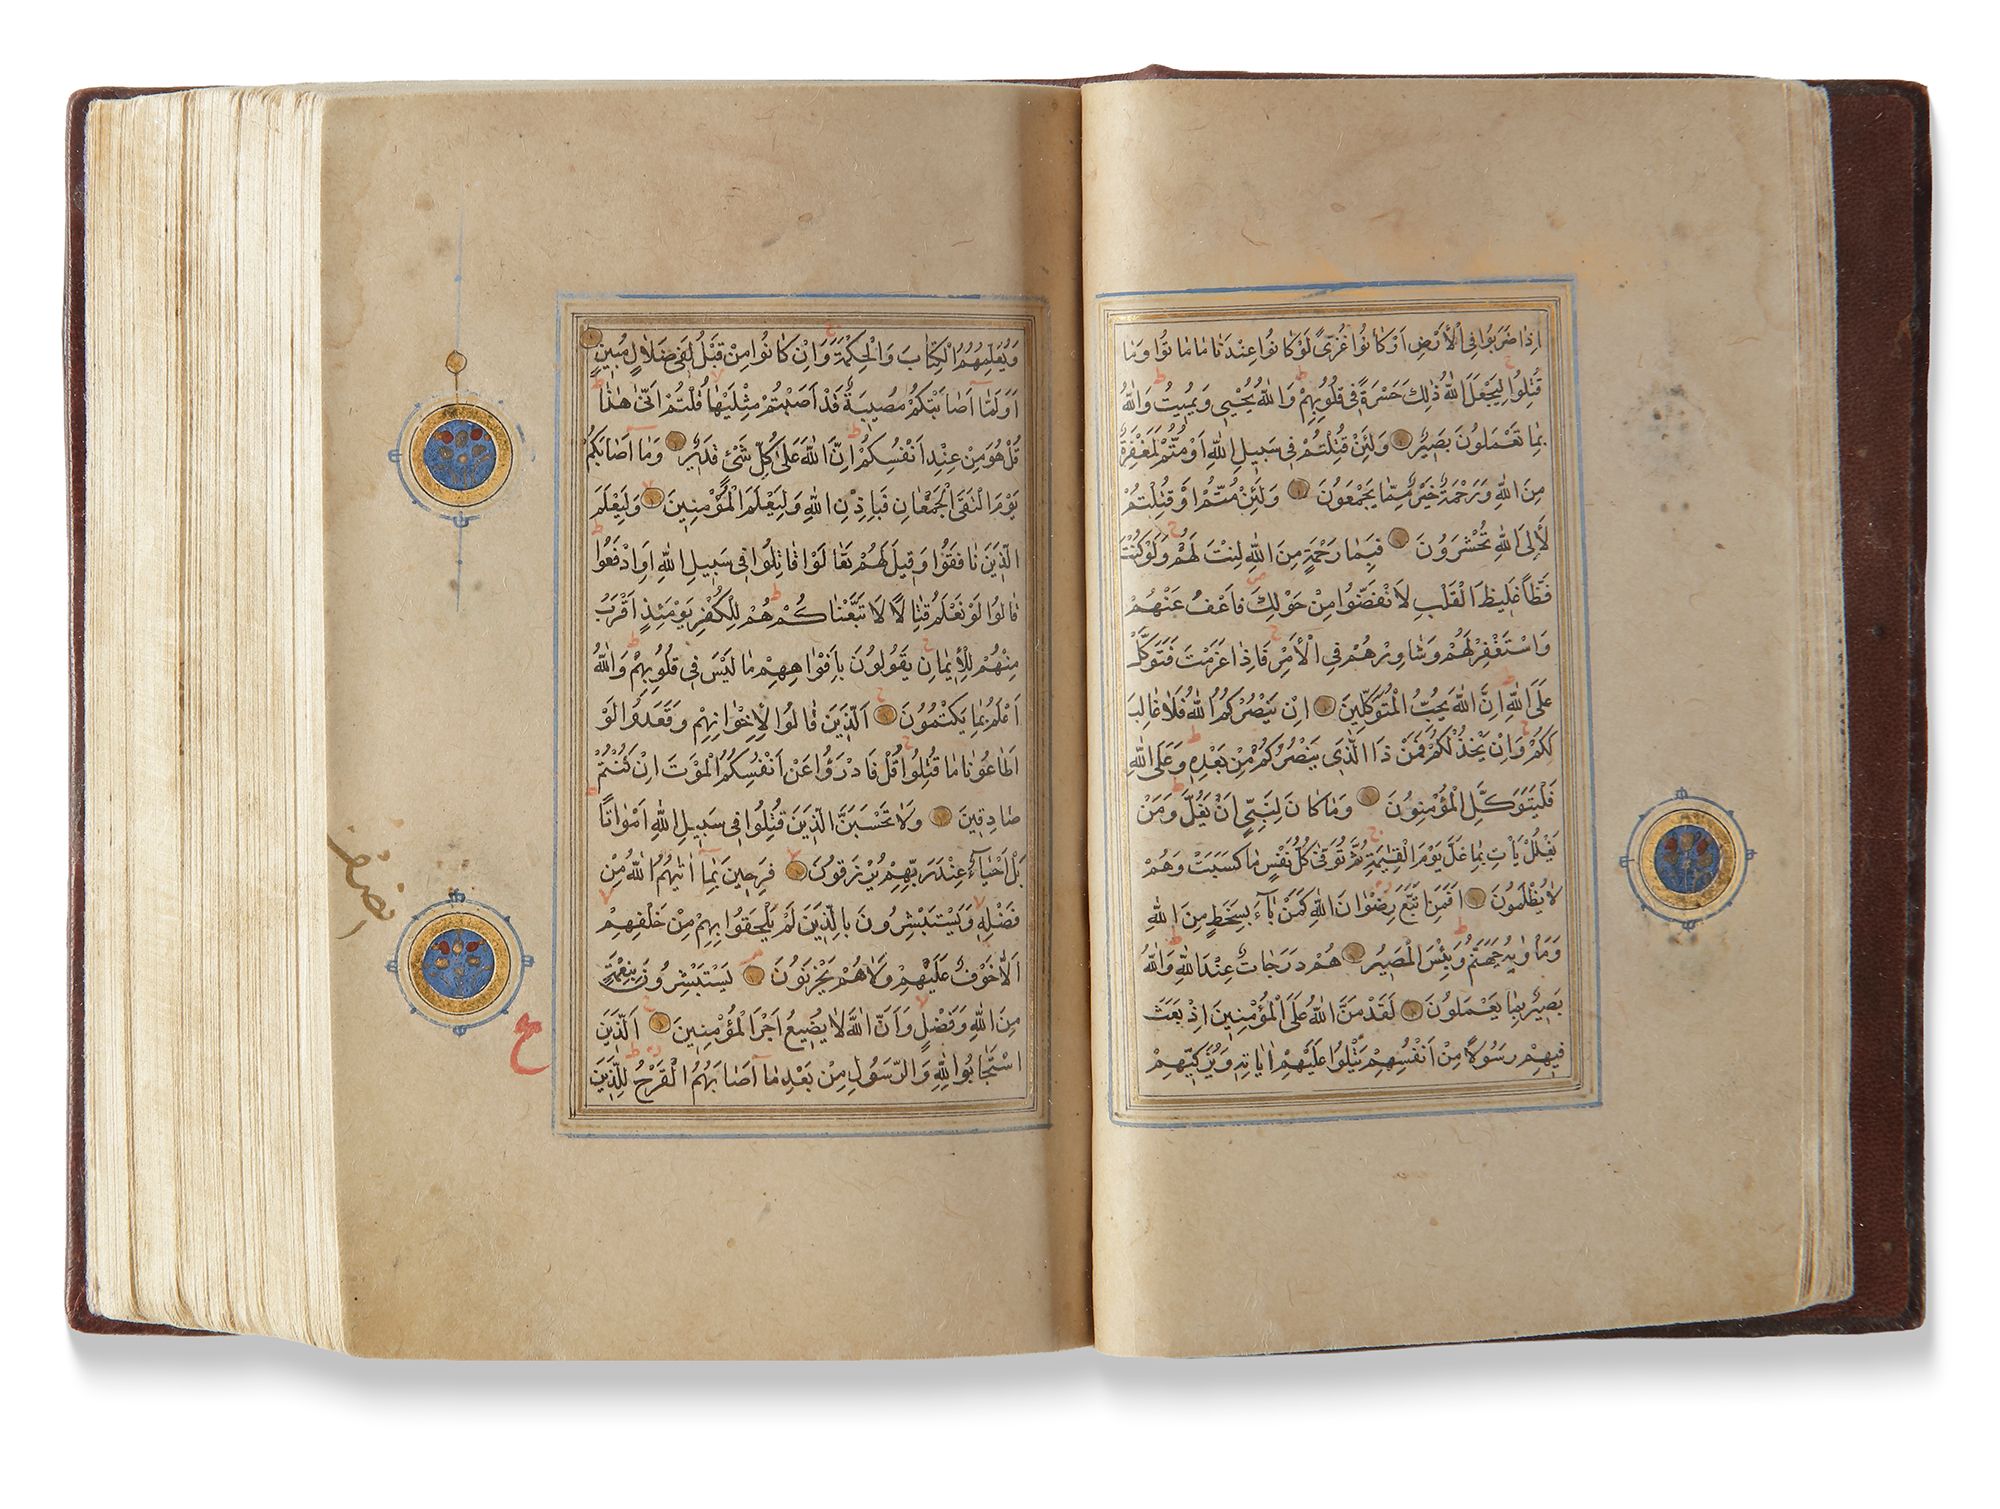 اِذَا ضَرَبُوا فِي الْاَرْضِ اَوْ كَانُوا غُزًّى لَوْ كَانُوا عِنْدَنَا مَا مَاتُوا وَمَا
قُتِلُوا لِيَجْعَلَ اللّٰهُ ذٰلِكَ حَسْرَةً فِي قُلُوبِهِمْ وَاللّٰهُ يُحْيِي وَيُمِيتُ وَاللّٰهُ
بِمَا تَعْمَلُونَ بَصِيرٌ وَلَئِنْ قُتِلْتُمْ فِي سَبِيلِ اللّٰهِ اَوْ مُتُّمْ لَمَغْفِرَةٌ
مِنَ اللّٰهِ وَرَحْمَةٌ خَيْرٌ مِمَّا يَجْمَعُونَ وَلَئِنْ مُتُّمْ اَوْ قُتِلْتُمْ
لَاِلَى اللّٰهِ تُحْشَرُونَ فَبِمَا رَحْمَةٍ مِنَ اللّٰهِ لِنْتَ لَهُمْ وَلَوْ كُنْتَ
فَظًّا غَلِيظَ الْقَلْبِ لَانْفَضُّوا مِنْ حَوْلِكَ فَاعْفُ عَنْهُمْ
وَاسْتَغْفِرْ لَهُمْ وَشَاوِرْهُمْ فِي الْاَمْرِ فَاِذَا عَزَمْتَ فَتَوَكَّلْ
عَلَى اللّٰهِ اِنَّ اللّٰهَ يُحِبُّ الْمُتَوَكِّلِينَ اِنْ يَنْصُرْكُمُ اللّٰهُ فَلَا غَالِبَ
لَكُمْ وَاِنْ يَخْذُلْكُمْ فَمَنْ ذَا الَّذِي يَنْصُرُكُمْ مِنْ بَعْدِهِ وَعَلَى اللّٰهِ
فَلْيَتَوَكَّلِ الْمُؤْمِنُونَ وَمَا كَانَ لِنَبِيٍّ اَنْ يَغُلَّ وَمَنْ
يَغْلُلْ يَاْتِ بِمَا غَلَّ يَوْمَ الْقِيٰمَةِ ثُمَّ تُوَفّٰى كُلُّ نَفْسٍ مَا كَسَبَتْ وَهُمْ
لَا يُظْلَمُونَ اَفَمَنِ اتَّبَعَ رِضْوَانَ اللّٰهِ كَمَنْ بَاءَ بِسَخَطٍ مِنَ اللّٰهِ
وَمَاْوٰيهُ جَهَنَّمُ وَبِئْسَ الْمَصِيرُ هُمْ دَرَجَاتٌ عِنْدَ اللّٰهِ وَاللّٰهُ
بَصِيرٌ بِمَا يَعْمَلُونَ لَقَدْ مَنَّ اللّٰهُ عَلَى الْمُؤْمِنِينَ اِذْ بَعَثَ
فِيهِمْ رَسُولًا مِنْ اَنْفُسِهِمْ يَتْلُوا عَلَيْهِمْ اٰيَاتِهِ وَيُزَكِّيهِمْ
وَيُعَلِّمُهُمُ الْكِتَابَ وَالْحِكْمَةَ وَاِنْ كَانُوا مِنْ قَبْلُ لَفِي ضَلَالٍ مُبِينٍ
اَوَلَمَّا اَصَابَتْكُمْ مُصِيبَةٌ قَدْ اَصَبْتُمْ مِثْلَيْهَا قُلْتُمْ اَنّٰى هٰذَا
قُلْ هُوَ مِنْ عِنْدِ اَنْفُسِكُمْ اِنَّ اللّٰهَ عَلٰى كُلِّ شَيْءٍ قَدِيرٌ وَمَا اَصَابَكُمْ
يَوْمَ الْتَقَى الْجَمْعَانِ فَبِاِذْنِ اللّٰهِ وَلِيَعْلَمَ الْمُؤْمِنِينَ وَلِيَعْلَمَ
الَّذِينَ نَافَقُوا وَقِيلَ لَهُمْ تَعَالَوْا قَاتِلُوا فِي سَبِيلِ اللّٰهِ اَوِ ادْفَعُوا
قَالُوا لَوْ نَعْلَمُ قِتَالًا لَاتَّبَعْنَاكُمْ هُمْ لِلْكُفْرِ يَوْمَئِذٍ اَقْرَبُ
مِنْهُمْ لِلْاِيمَانِ يَقُولُونَ بِاَفْوَاهِهِمْ مَا لَيْسَ فِي قُلُوبِهِمْ وَاللّٰهُ
اَعْلَمُ بِمَا يَكْتُمُونَ اَلَّذِينَ قَالُوا لِاِخْوَانِهِمْ وَقَعَدُوا لَوْ
اَطَاعُونَا مَا قُتِلُوا قُلْ فَادْرَؤُا عَنْ اَنْفُسِكُمُ الْمَوْتَ اِنْ كُنْتُمْ
صَادِقِينَ وَلَا تَحْسَبَنَّ الَّذِينَ قُتِلُوا فِي سَبِيلِ اللّٰهِ اَمْوَاتًا
بَلْ اَحْيَاءٌ عِنْدَ رَبِّهِمْ يُرْزَقُونَ فَرِحِينَ بِمَا اٰتٰيهُمُ اللّٰهُ مِنْ
فَضْلِهِ وَيَسْتَبْشِرُونَ بِالَّذِينَ لَمْ يَلْحَقُوا بِهِمْ مِنْ خَلْفِهِمْ
اَلَّا خَوْفٌ عَلَيْهِمْ وَلَا هُمْ يَحْزَنُونَ يَسْتَبْشِرُونَ بِنِعْمَةٍ
مِنَ اللّٰهِ وَفَضْلٍ وَاَنَّ اللّٰهَ لَا يُضِيعُ اَجْرَ الْمُؤْمِنِينَ اَلَّذِينَ
اسْتَجَابُوا لِلّٰهِ وَالرَّسُولِ مِنْ بَعْدِ مَا اَصَابَهُمُ الْقَرْحُ لِلَّذِينَ
ع